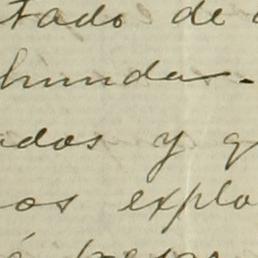 tado de
hunda.
ados y q
os explo